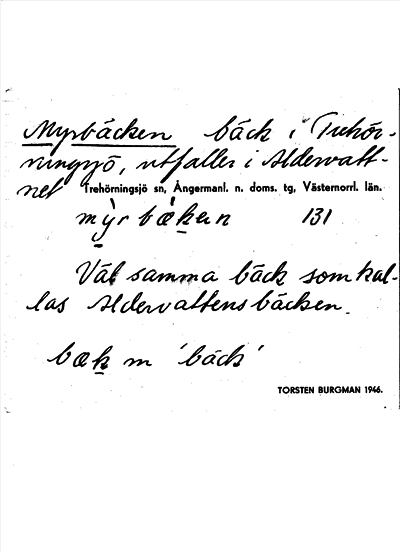 Myrbäcken bäck i Trehör-
ningsjö, utfaller i Aldervatt-
net Trehörningsjö sn, Ångermanl. n. doms. tg, Västernorrl. län.
131
Väl samma bäck som kal-
las Aldervattensbäcken.
bæk m 'bäck'
TORSTEN BURGMAN 1946.